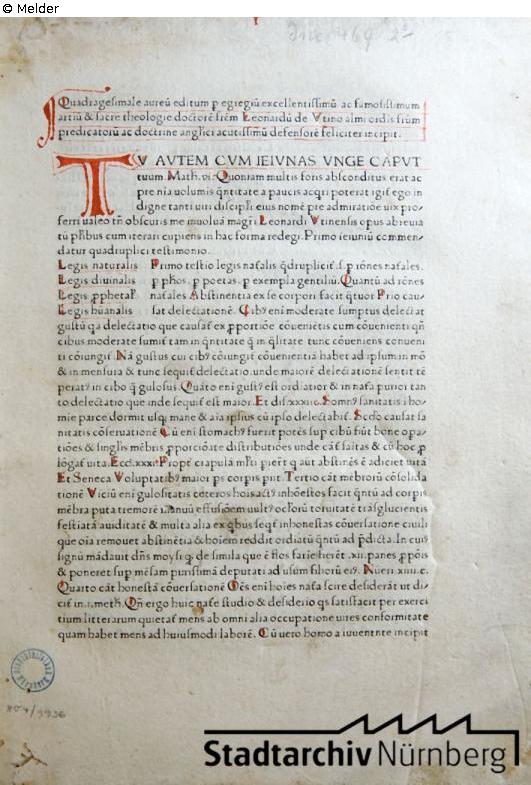 © Melder
Quadragesimale aureū editum p egregiū excellentissimū ac famosissimum
artiū & sacre theologie doctorē frēm Leonardū de Vtino almi ordis frūm
predicatorū ac doctrine anglici acutissimū defensorē feliciter incipit.
TV AVTEM CVM IEIVNAS VNGE CAPVT
tuum. Math. vi. Quoniam multis foris absconditus erat ac
pre nia uolumis q̄ntitate a paucis acqri poterat igif ego in
digne tanti uiri discipli eius nomē pre admiratiōe uix pro-
ferri ualeo tn̄ obscuris me inuolua magri Leonardi Vtinensis opus abreuia
tū p̄ribus cum iterari cupiens in hac forma redegi. Primo ieiuniū commen-
datur quadruplici testimonio.
Legis naturalis Primo testio legis nafalis q̄druplicif. s. p rōnes nafales.
Legis diuinalis p phos. p poetas. p exempla gentiliū. Quantū ad rōnes
Legis pphetaꝶ nafales Abstinentia ex se corpori facit q̄tuor Prio cau-
Legis huanalis saf delectationē. Cibꝰ eni moderate sumptus delectat
gustū qa delectatio que causaf ex pportiōe cōueniētis cum cōuenienti qn̄
cibus moderate sumif tam in q̄ntitate q̄ in q̄litate tunc cōueniens conueni
ti cōiungif. Nā gustus cui cibꝰ cōiungif cōuenientiā habet ad ipsum in mō
& in mensura & tunc sequif delectatio. unde maiorē delectationē sentit tē
peratꝰ in cibo q̄ gulosus. Quāto eni gustꝰ est ordiatior & in nafa purior tan
to delectatio que inde sequif est maior. Et dif. xxxi. c. Somnꝰ sanitatis i ho-
mie parce dormit usq̄ mane & aia ipsius cū ipso delectabif. Scdo causaf sa
nitatis cōseruationē Cū eni stomachꝰ fuerit potēs sup cibū fiūt bone opa-
tiōes & singlis mēbris pporciōate distributiōes unde caf saītas & cū hoc p
lōgaf uita. Eccī. xxxi. Propt crapulā mlti pierūt q aūt abstinēs ē adiciet uitā
Et Seneca Voluptatibꝰ maior ps corpis piit. Tertio caf mēbrorū cōsolida
tionē Viciū eni gulositatis ceteros hois actꝰ inhōestos facit q̄ntū ad corpis
mēbra puta tremorē manuū effusiōem uultꝰ oclorū toruitatē trāsglucientis
festiatā auiditatē & multa alia ex qbus seqf inhonestas cōuersatiōe ciuili
que oīa remouet abstinētia & hoiem reddit ordiatū q̄ntū ad pdicta. In cuiꝰ
signū mādauit dn̄s moysi q de simila que ē flos farie fierēt. xii. panes ppōis
& poneret sup mēsam purissimā deputati ad usum filiorū eiꝰ. Nueri. xiiii. c.
Quarto caf honestā cōuersationē Oēs eni hoies nafa scire desiderāt ut di-
cif in. i. meth. Qn̄ ergo huic nafe studio & desiderio qs satisfacit per exerci
tium litterarum quietaf mens ab omni alia occupatione uires conformitate
quam habet mens ad huiusmodi laborē. Cū uero homo a iuuentute incipit
Stadtarchiv Nürnberg